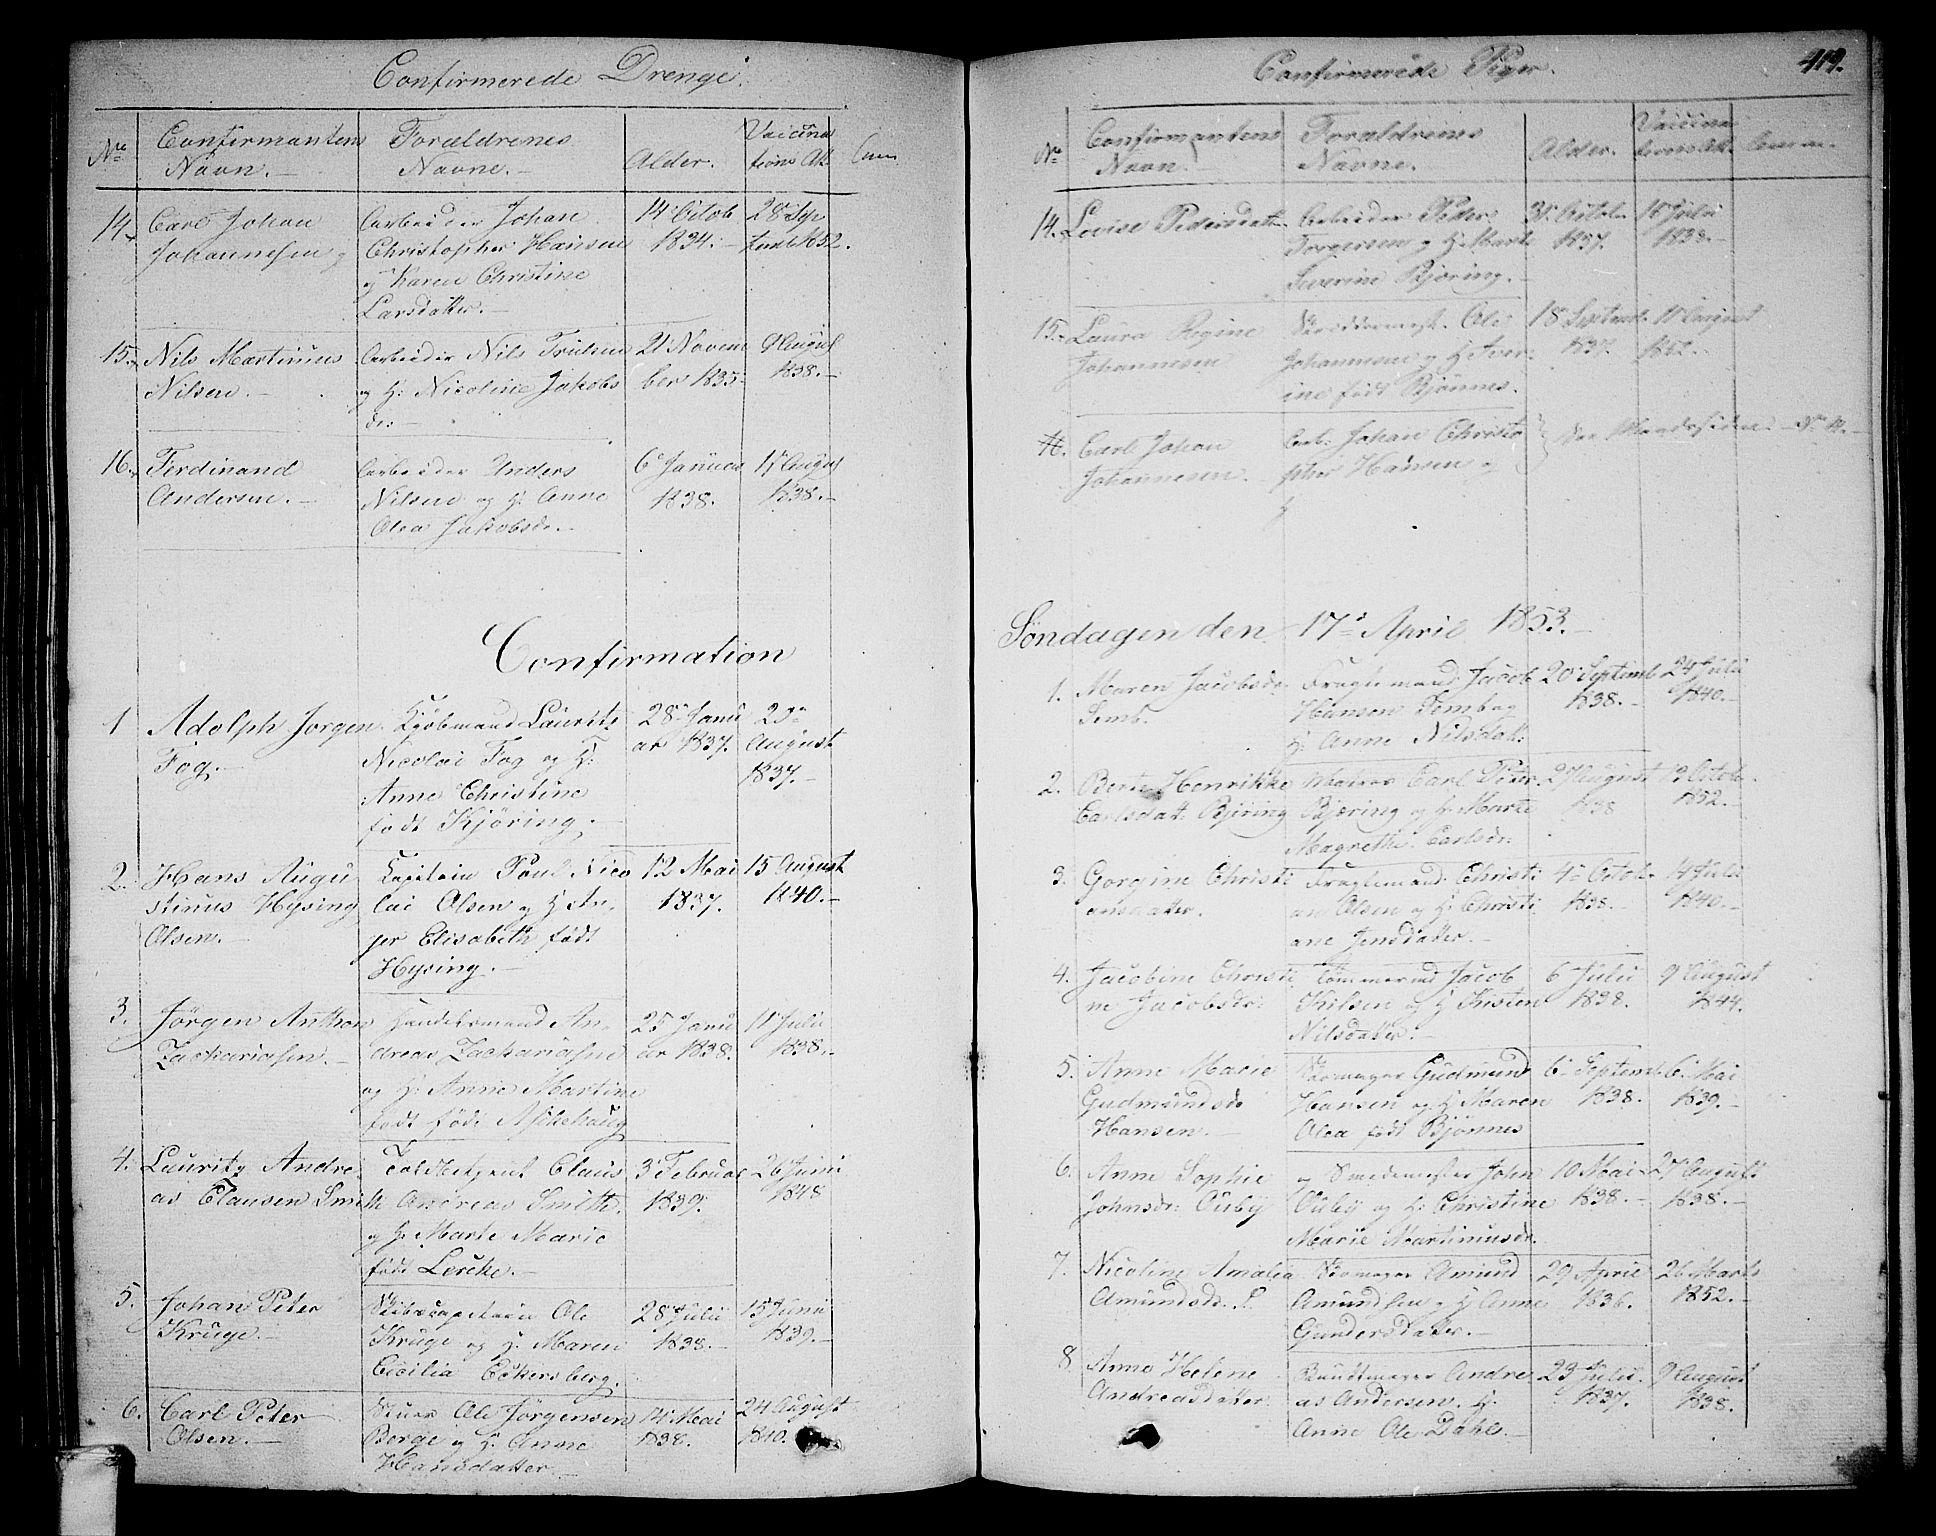 Confirmerede Drenge.
No
Confirmantens
Navn.
Forældrenes
Navne.
Alder.
Vaccina
tions At.
14.
Carl Johan
Johannesen
Arbeider Johan
Christopher Hansen
og Karen Christine
Larsdatter.
14 Octob
1834.
28 Sep
1852.
15.
Nils Martinus
Nilsen.
Arbeider Nils Trulsen
og H: Nicoline Jakobs
dr.
21 Novem
ber 1835.
9 August
1838.
16.
Ferdinand
Andersen.
Arbeider Anders
Nilsen og H: Anne
Olea Jakobsdr.
6 Januar
1838.
1838.
Confirmation
1
Adolph Jørgen
Fog.
Kjøbmand Lauritz
Nicolai Fog og H:
Anne Christine
født Kjöring.
28 Janu
ar 1837.
August
1837.
2.
Hans Augu
stinus Hysing
Olsen.
Capitain Poul Nico
lai Olsen og H: In
ger Elisabeth født
Hysing.
12 Mai
1837.
15 August
1840.
3.
Jörgen Anthon
Zachariasen.
Handelsmand An
dreas Zachariasen
og H: Anne Martine
født født Askehaug
25 Janu
ar 1838.
11 Julii
1838.
4.
Lauritz Andre
as Clausen Smith
Toldbetjent Claus
Andreas Smith
og H: Marte Marie
født Lerche.
3 Februar
1839.
26 Juni
1848
5.
Johan Peter
Krüge.
Skibscapitain Ole
Krüge og H: Maren
Cicilia Eckersberg.
28 Julii
1838.
15 Junii
1839.
6.
Carl Peter
Olsen.
Ole Jörgensen
Berge og H: Anne
Hansdatter
14 Mai
1838.
24 August
1840.
Confirmerede Piger.
419.
No
Confirmantens
Navn.
Forældrenes
Navne.
Alder.
Vaccina
tions At.
14.
Lovise Pedersdatr
Arbeider Peder
Torgersen og H: Marte
Severine Bjøring.
Octobr
1837.
Julii
1838.
15.
Laura Regine
Johannesen
Ole
Johannesen og H: Aver
ine født Bjönnes.
18 Septemb.
1837.
August
1852.
Carl Johan
Johannesen.
Arb: Johan Christo
pher Hansen og
Söndagen den 17de April 1853.
1.
Maren Jacobsdr.
Semb.
Fragtemand Jacob
Hansen Semb og
H: Anne Nilsdatr
20 Septemb
1838.
24 Julii
1840.
2.
Berte Henrikke
Carlsdat: Björing
Carl Peter
Bjøring og H: Marte
Magrethe Carlsdr:
27 August
1838
13 Octob.
1852.
3.
Gorgine Christi
ansdatter.
Fragtemand Christi
an Olsen og H: Christi
ane Jensdatter.
4 Octob.
1838.
14 Julii
1840.
4.
Jacobine Christi
ne Jacobsdr:
Tømmermd Jacob
Nilsen og H: Kisten
Nilsdatter.
6 Julii
1838.
9 August
1844.
5.
Anne Marie
Gudmundsdr
Hansen.
Skomager Gudmund
Hansen og H: Maren
Olea født Bjönnes
6 Septemb
1838.
6 Mai
1839.
6.
Anne Sophie
Johnsdr: Ouby
Smedemester John
Ouby og H: Christine
Marie Martiniusdr.
10 Mai
1838.
27 August
1838.
7.
Nicoline Amalia
Amundsdr.
Skomager Amund
Amundsen og H: Anne
Gundersdatter.
29 April
1836.
26 Marts
1852.
8
Anne Helene
Andreasdatter
Buntmager Andre
as Andersen. H:
Anne Ole Dahls.
23 Julii
1837.
9 August
1838.